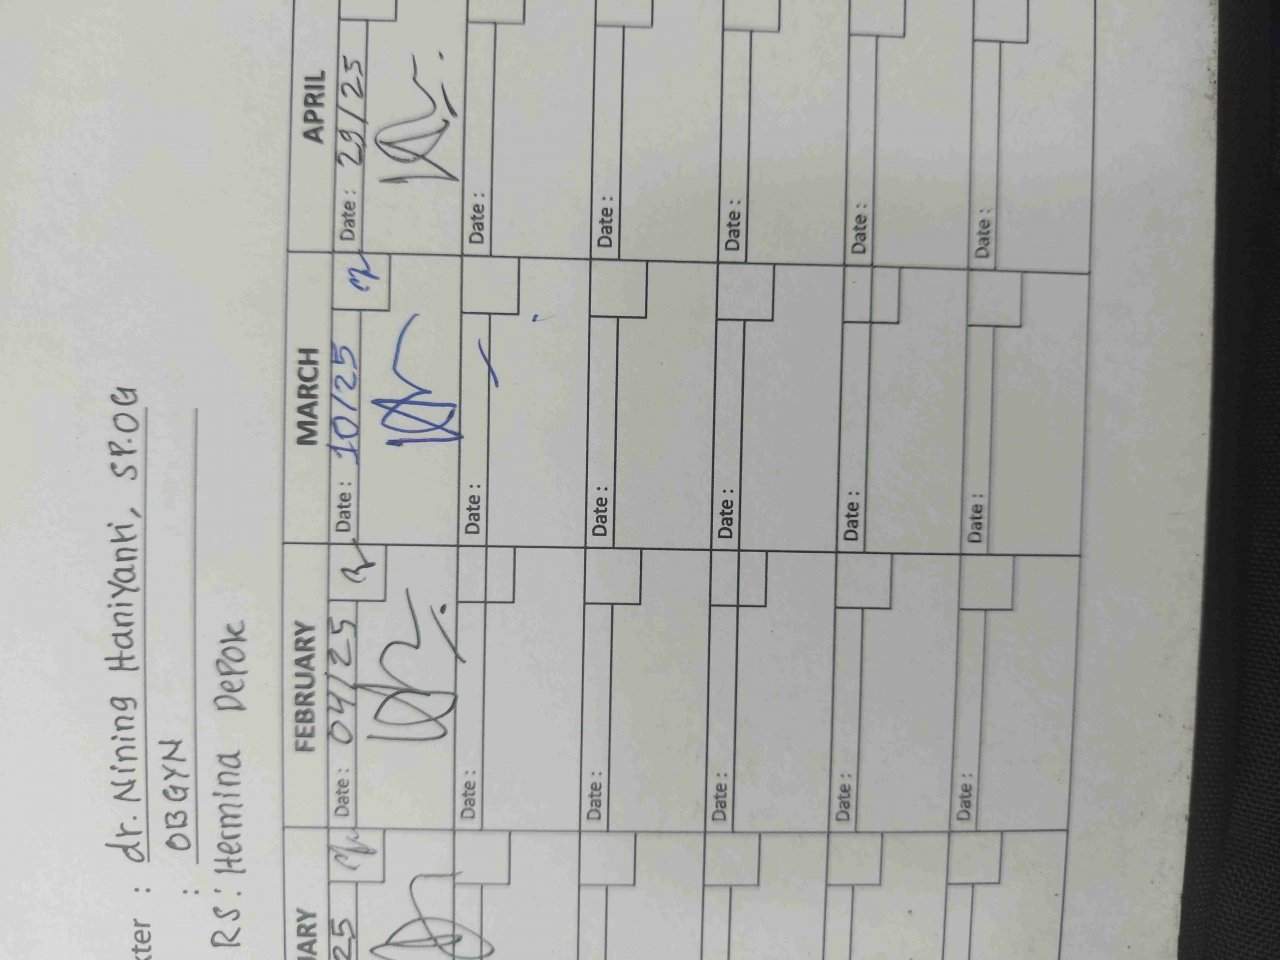 kter : dr. Nining Haniyanti, SP.OG
: OBGYN
RS : Hermina Depok
UARY FEBRUARY MARCH APRIL
25 Date : 04/25 Date : 10/25 Date : 29/25
Date : Date : Date :
Date : Date : Date :
Date : Date : Date :
Date : Date : Date :
Date : Date : Date :